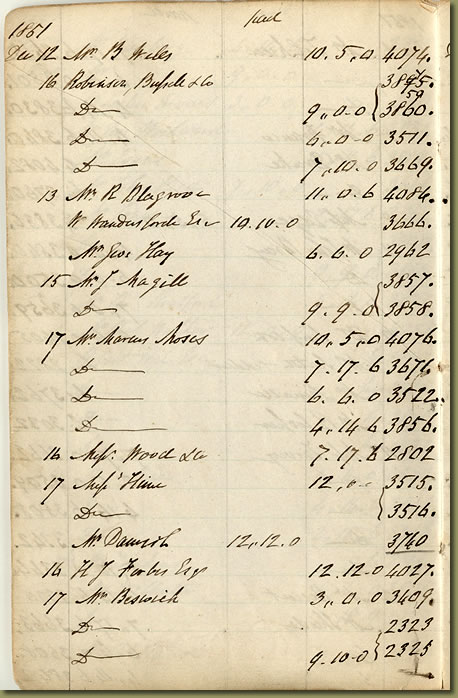 1851
paid
Dec 12 Mr. B Wales 10.5.0 4074.
16 Robinson, Bussell & Co 3895.
59
Do 9,,0-0 3860.
Do 6,,0-0 3511.
Do 7,,10.0 3669.
13 Mr R Blagrove 11,,0.6 4084.
W Wandesforde Esr 10.10.0 3666.
Mr Geo Hay 6.6.0 2962
15 Mr J Magill 3857.
Do 9.9.0 3858.
17 Mr Marcus Moses 10,,5,,0 4076.
Do 7.17.6 3671.
Do 6.6.0 3522.
Do 4,,14.6 3856.
16 Messrs Wood & Co 7.17.6 2802
17 Messrs Hime 12,,-- 3515.
Do 3516.
Mr 12,,12.0 3740
16 H J Forbes Esqr 12.12-0 4027.
17 Mr Beswick 3,,0.0 3409.
Do 2323
Do 9.10-0 2325